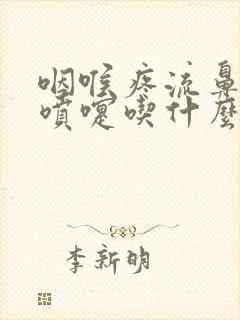 咽喉疼流鼻
噴嚏喫什麼
李新明